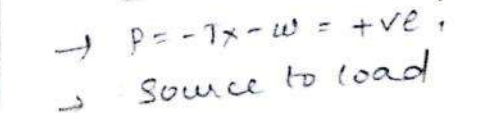 → P = -Tx-w = +ve.
→ Source to load